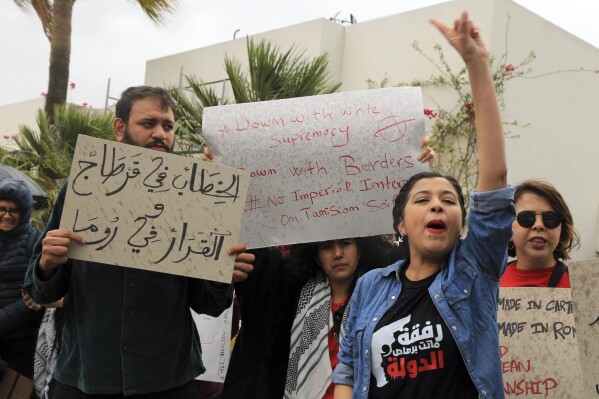 الخطاب في قرطاج
و
القرار في روما
* Down with white
Supremacy
Down with Borders
# No Imperial Inter
On Tunisian Soi
رفقة
ماتت برصاص
الدولة
MADE IN CART
MADE IN ROM